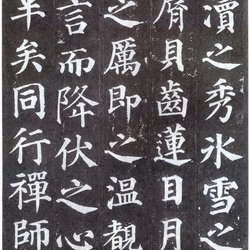 瀆之秀氷雪之
脣貝齒蓮日月
之厲即之温覩
言而降伏之心
卒矣同行禪師